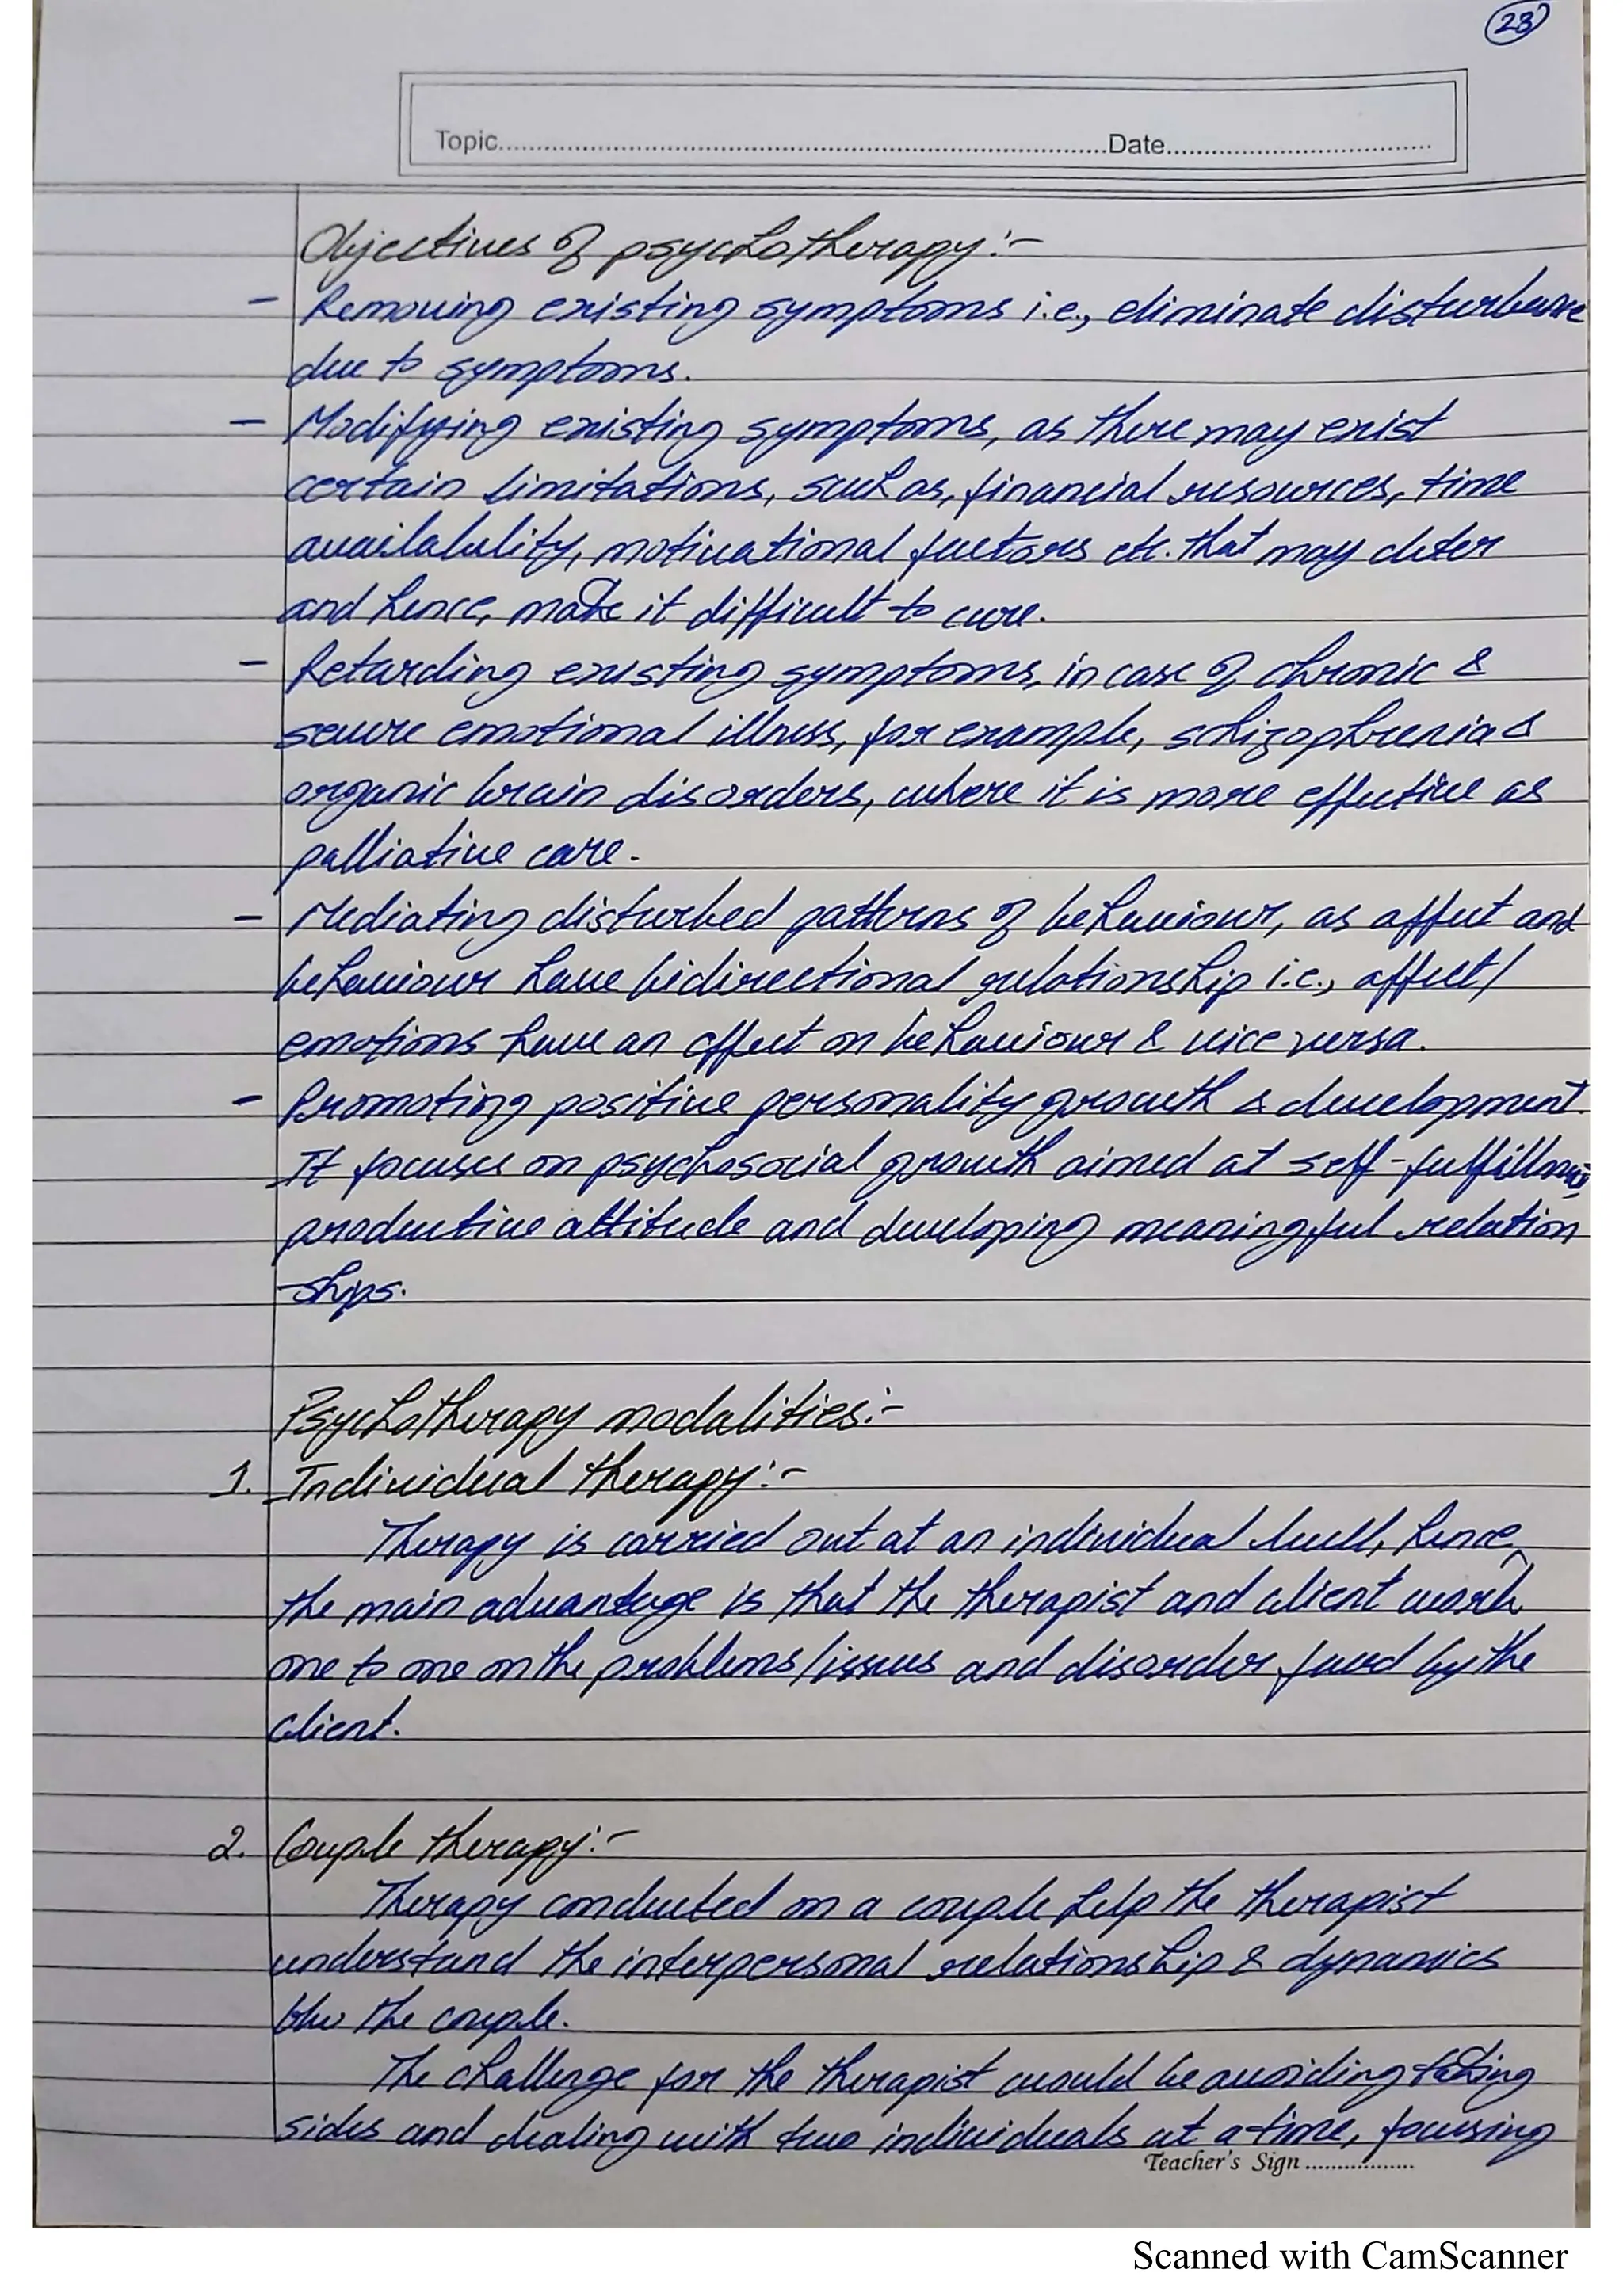 23
Topic..........Date..........
Objectives of psychotherapy:-
- Removing existing symptoms i.e., eliminate disturbance
due to symptoms.
- Modifying existing symptoms, as there may exist
certain limitations, such as, financial resources, time
availability, motivational factors etc. that may deter
and hence, make it difficult to cure.
- Retarding existing symptoms, in case of chronic &
severe emotional illness, for example, schizophrenia &
organic brain disorders, where it is more effective as
palliative care.
- Mediating disturbed patterns of behaviour, as affect and
behaviour have bidirectional relationship i.e., affect/
emotions have an effect on behaviour & vice versa.
- Promoting positive personality growth & development.
It focuses on psychosocial growth aimed at self-fulfillment,
productive attitude and developing meaningful relation
-ships.
Psychotherapy modalities:-
1. Individual therapy:-
Therapy is carried out at an individual level, hence,
the main advantage is that the therapist and client work
one to one on the problems/issues and disorder faced by the
client.
2. Couple therapy:-
Therapy conducted on a couple help the therapist
understand the interpersonal relationship & dynamics
b/w the couple.
The challenge for the therapist would be avoiding taking
sides and dealing with two individuals at a time, focusing
Teacher's Sign ..........
Scanned with CamScanner